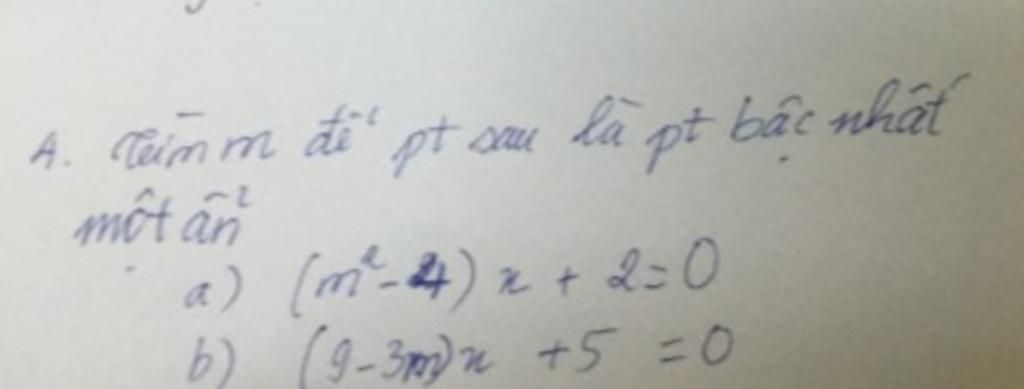 A. Tìm m để pt sau là pt bậc nhất
một ẩn
a) (m² - 4) x + 2 = 0
b) (9 - 3m) x + 5 = 0